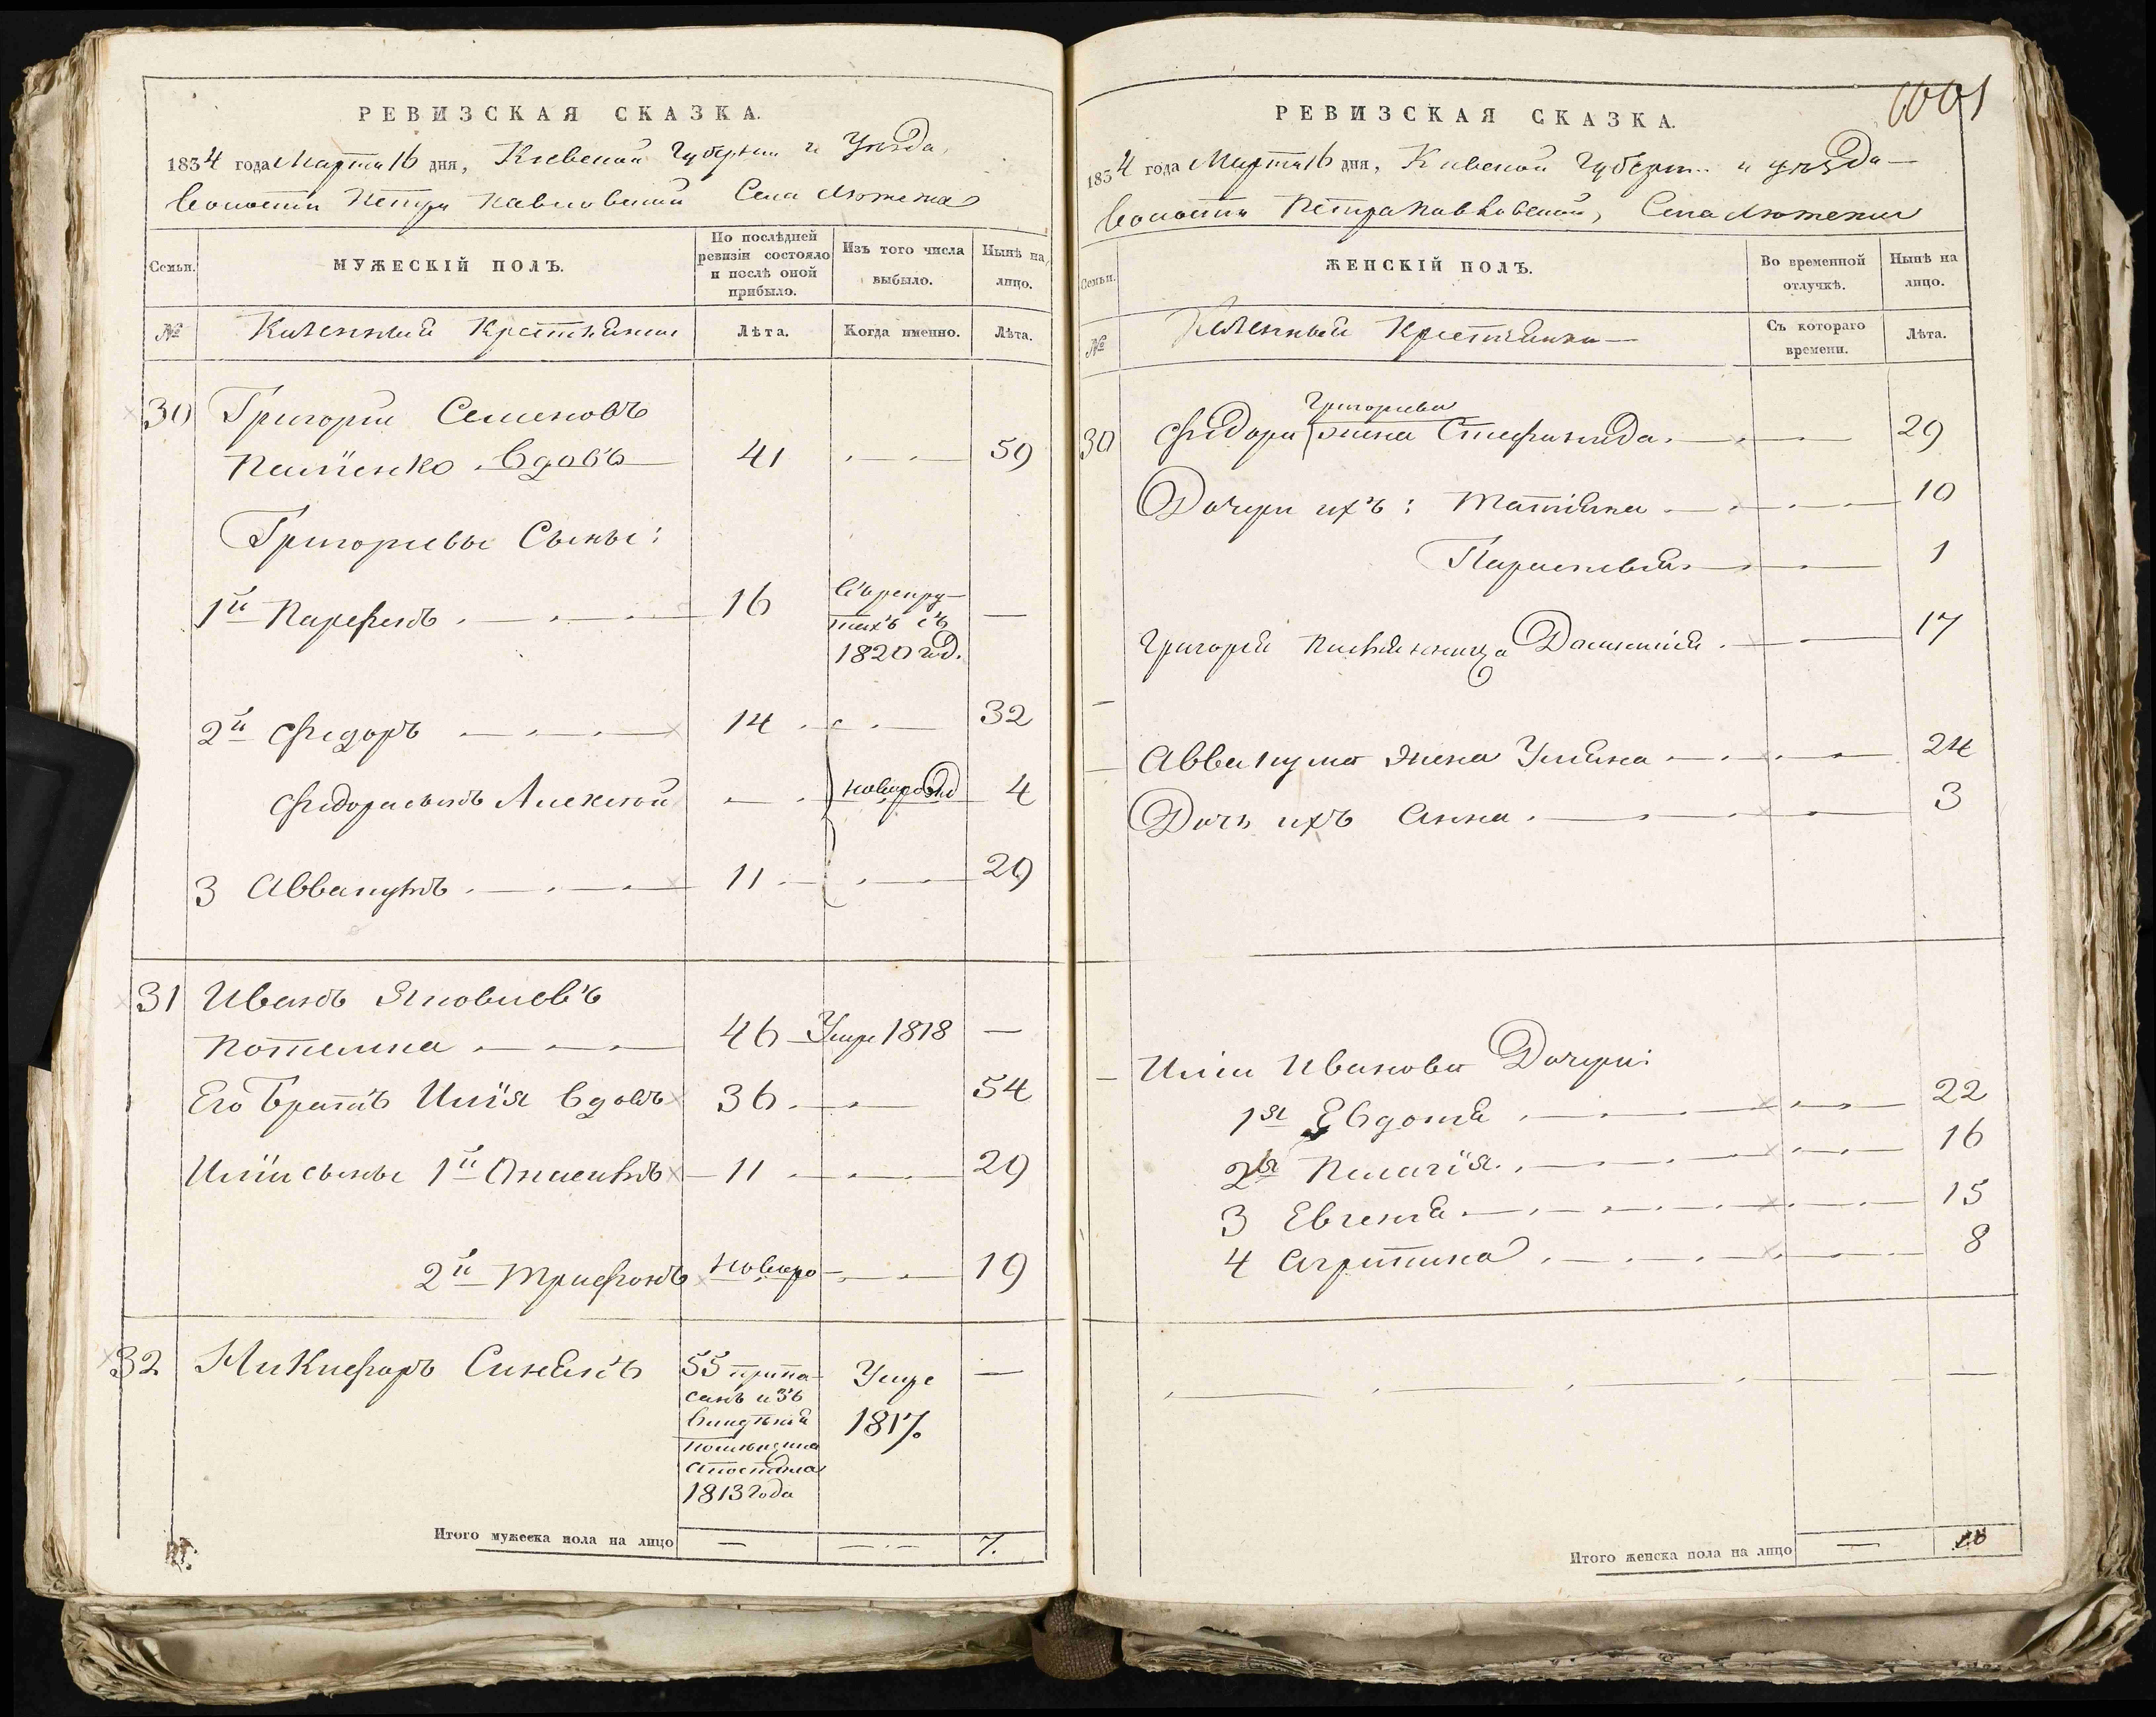 РЕВИЗСКАЯ СКАЗКА.
1834 года Марта 16 дня, Кіевской Губерніи и Уѣзда,
Волости Петро Павловской Села Лютежа
Семьи.
МУЖЕСКІЙ ПОЛЪ.
По послѣдней ревизіи состояло и послѣ оной прибыло.
Изъ того числа выбыло.
Нынѣ на лицо.
№
Казенный Крестьянинъ
Лѣта.
Когда именно.
Лѣта.
30 Григорій Семеновъ
вдовъ 41 59
Григорьевы Сыны:
1й Парфенъ 16 Въ рекру-
тахъ съ
1820 год.
2й Федоръ 14 32
Федора сынъ Алексѣй новорожд 4
3 Аввакумъ 11 29
31 Иванъ Яковлевъ
46 Умре 1818 —
Его Братъ Илія вдовъ 36 54
Иліи сыны 1й 11 29
2й Трифонъ новоро 19
32 Никифоръ 55 припи-
санъ изъ
владѣнія
помѣщика
1813 года
Умре
1817.
—
Итого мужеска пола на лицо — — 7.
РЕВИЗСКАЯ СКАЗКА.
1834 года Марта 16 дня, Кіевской Губерніи и уѣзда
Волости Петра Павловской, Села Лютежа
Семьи.
ЖЕНСКІЙ ПОЛЪ.
Во временной отлучкѣ.
Нынѣ на лицо.
№
Съ котораго времени.
Лѣта.
Григорьева
30 Федора жена Стефанида 29
Дочери ихъ: Татіяна 10
Параскевія 1
Григорія племянница 17
Аввакума жена Уліяна 24
Дочь ихъ Анна 3
Иліи Иванова Дочери:
1я Евдокія 22
2я Пелагія 16
3 Евгенія 15
4 Агрипина 8
Итого женска пола на лицо —